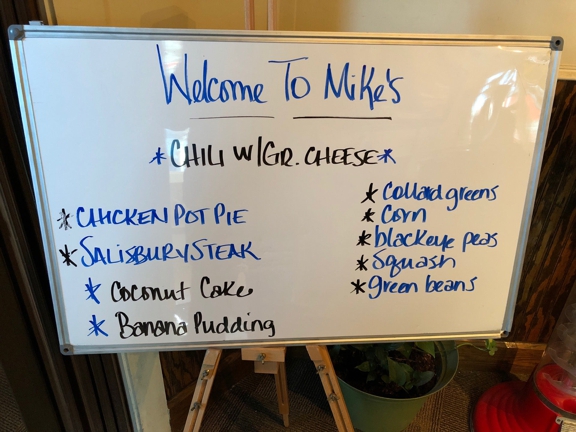 Welcome To Mike's
*CHILI W/GR. CHEESE*
*CHICKEN POT PIE
*SALISBURY STEAK
* Coconut Cake
* Banana Pudding
*Collard greens
*Corn
*blackeye peas
*Squash
*green beans